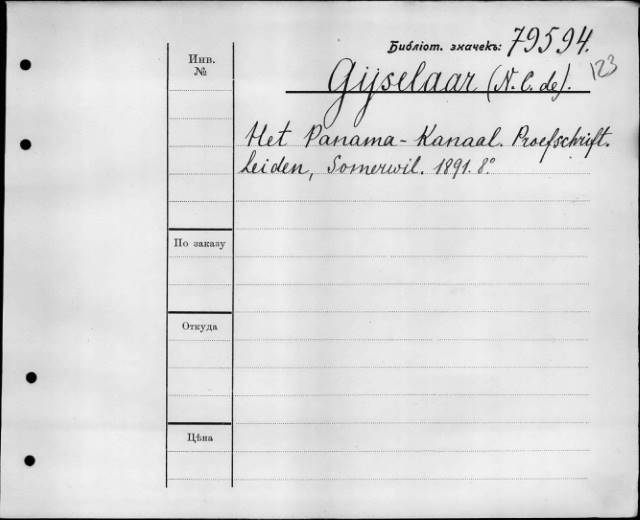 Библіот. значекъ: 79594.
123
Инв.
№
Gijselaar (N. C. de).
Het Panama-Kanaal. Proefschrift.
Leiden, Somerwil. 1891. 8°
По заказу
Откуда
Цѣна